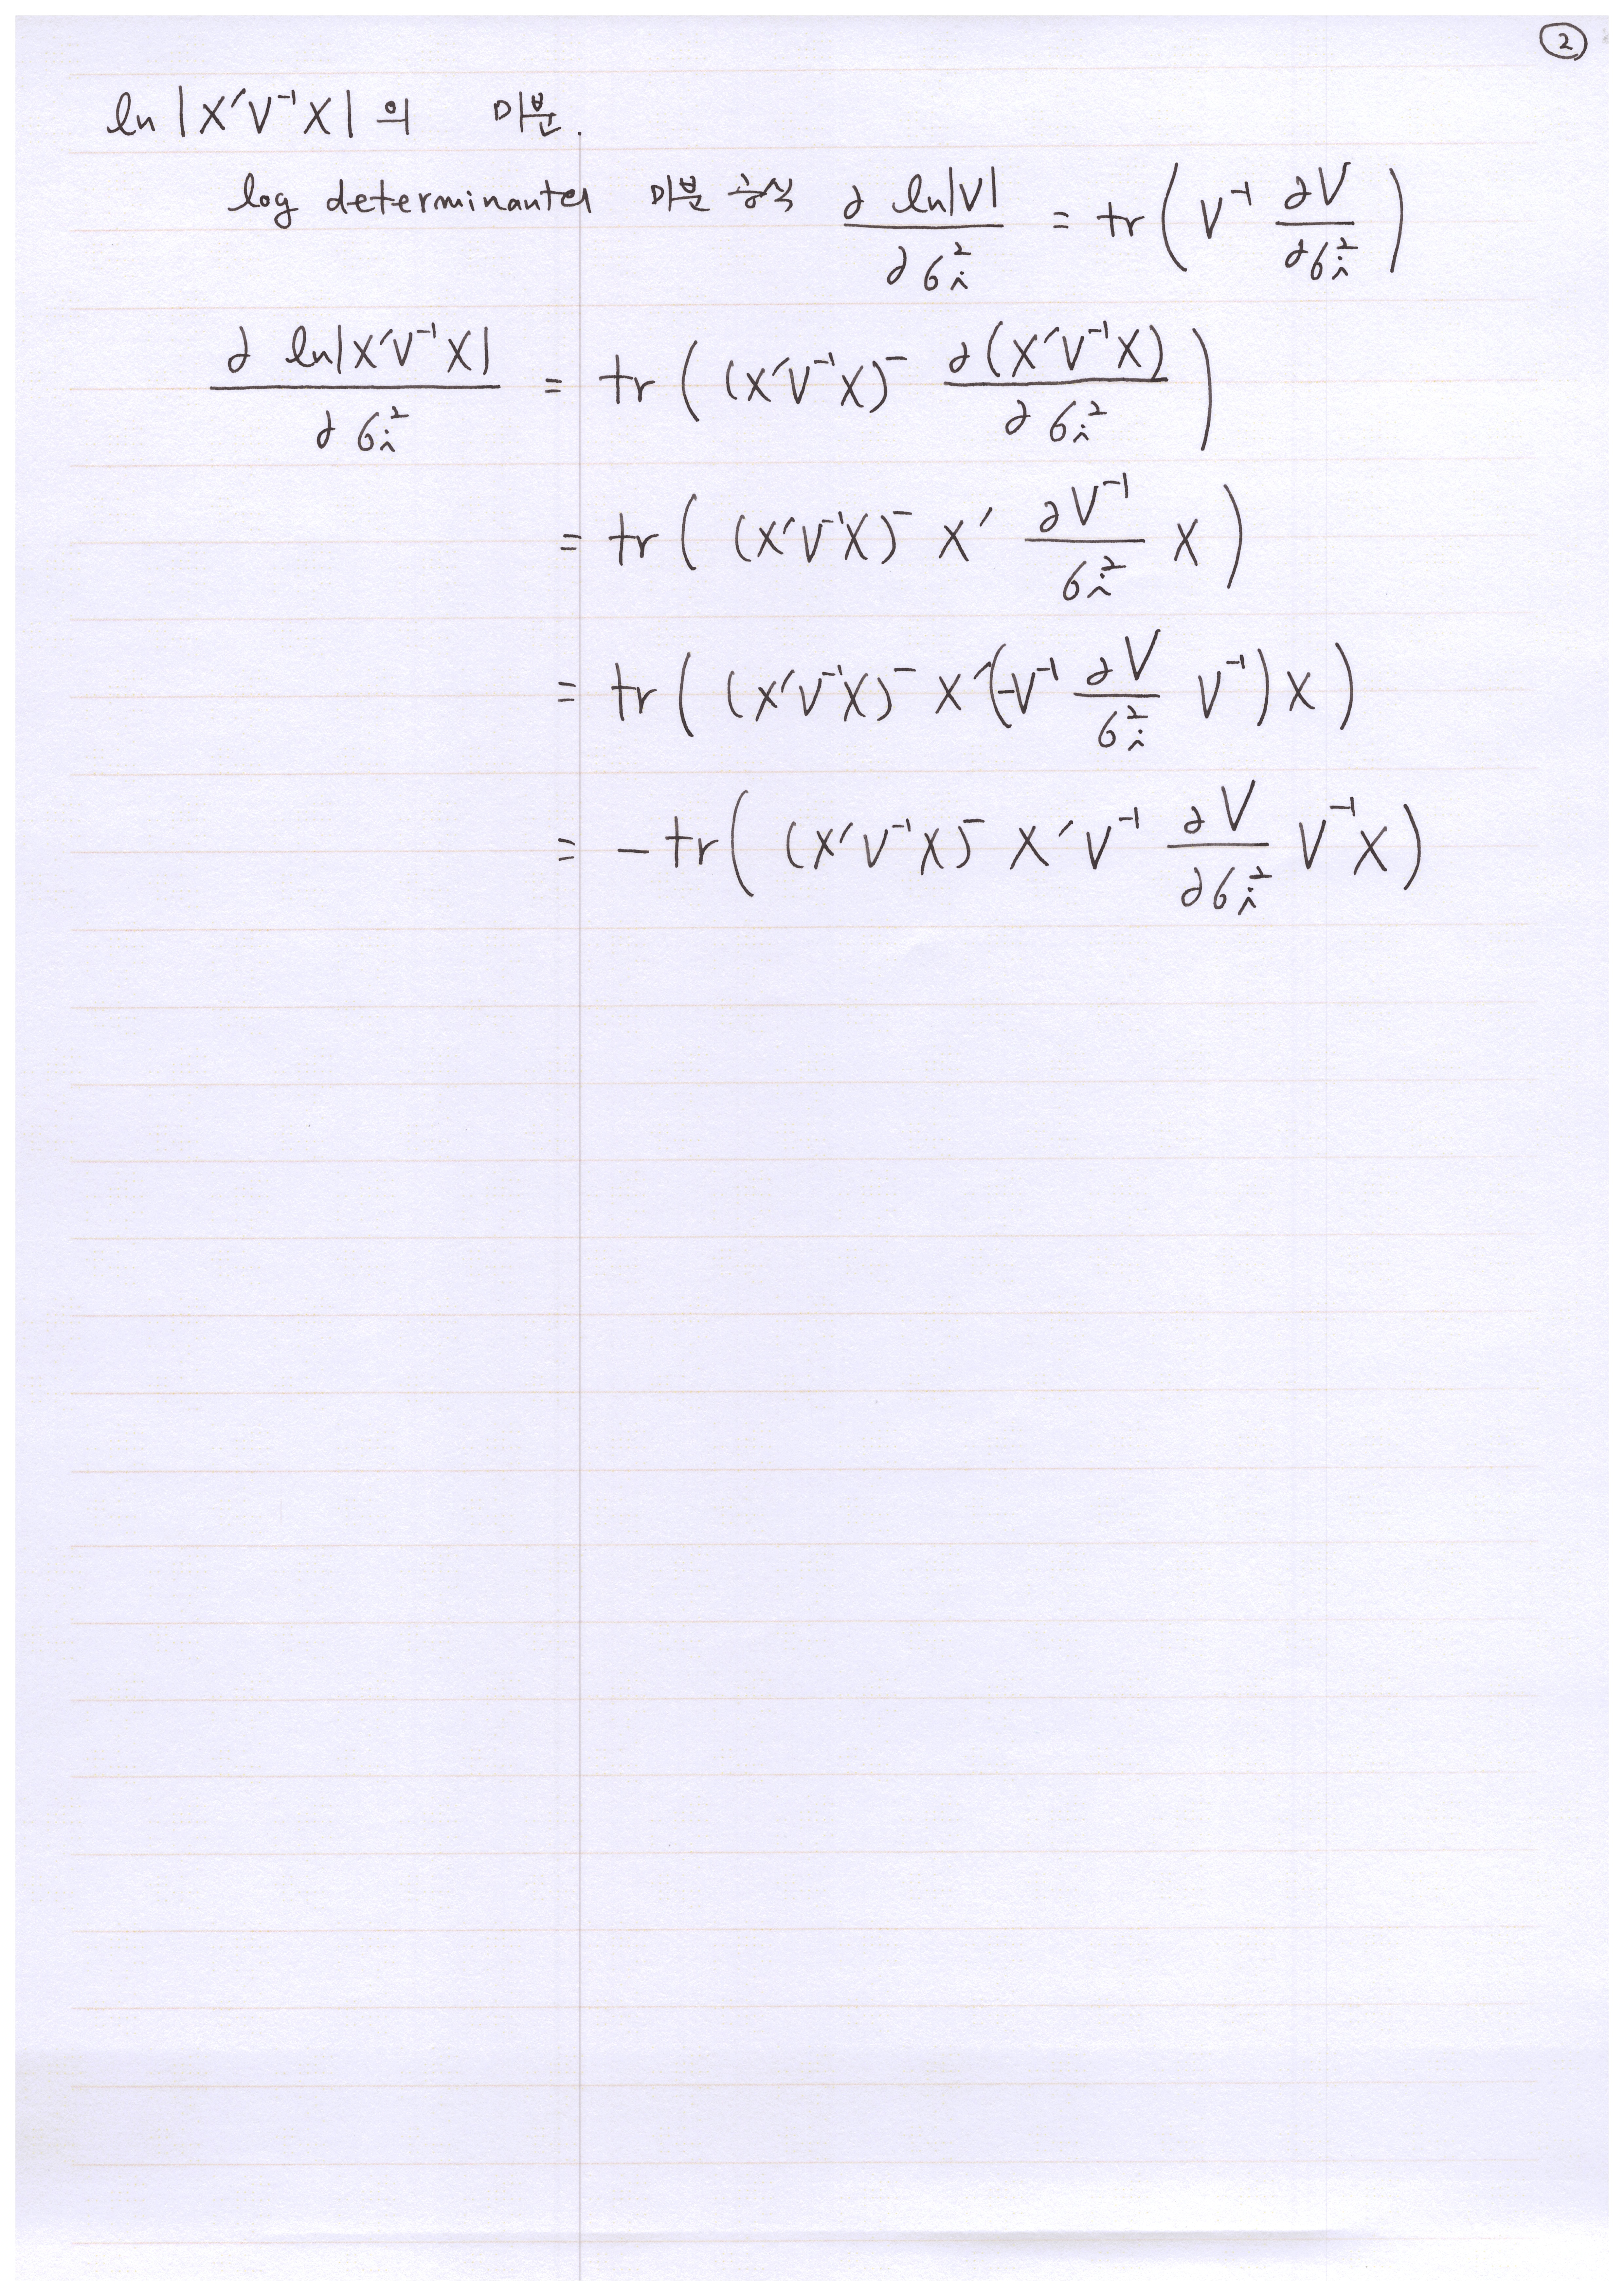 ②
ln |X′V⁻¹X| 의 미분.
log determinant의 미분 공식 ∂ ln|V| / ∂σᵢ² = tr ( V⁻¹ ∂V / ∂σᵢ² )
∂ ln|X′V⁻¹X| / ∂σᵢ² = tr ( (X′V⁻¹X)⁻ ∂(X′V⁻¹X) / ∂σᵢ² )
= tr ( (X′V⁻¹X)⁻ X′ ∂V⁻¹ / σᵢ² X )
= tr ( (X′V⁻¹X)⁻ X′(-V⁻¹ ∂V / σᵢ² V⁻¹) X )
= - tr ( (X′V⁻¹X)⁻ X′V⁻¹ ∂V / ∂σᵢ² V⁻¹X )